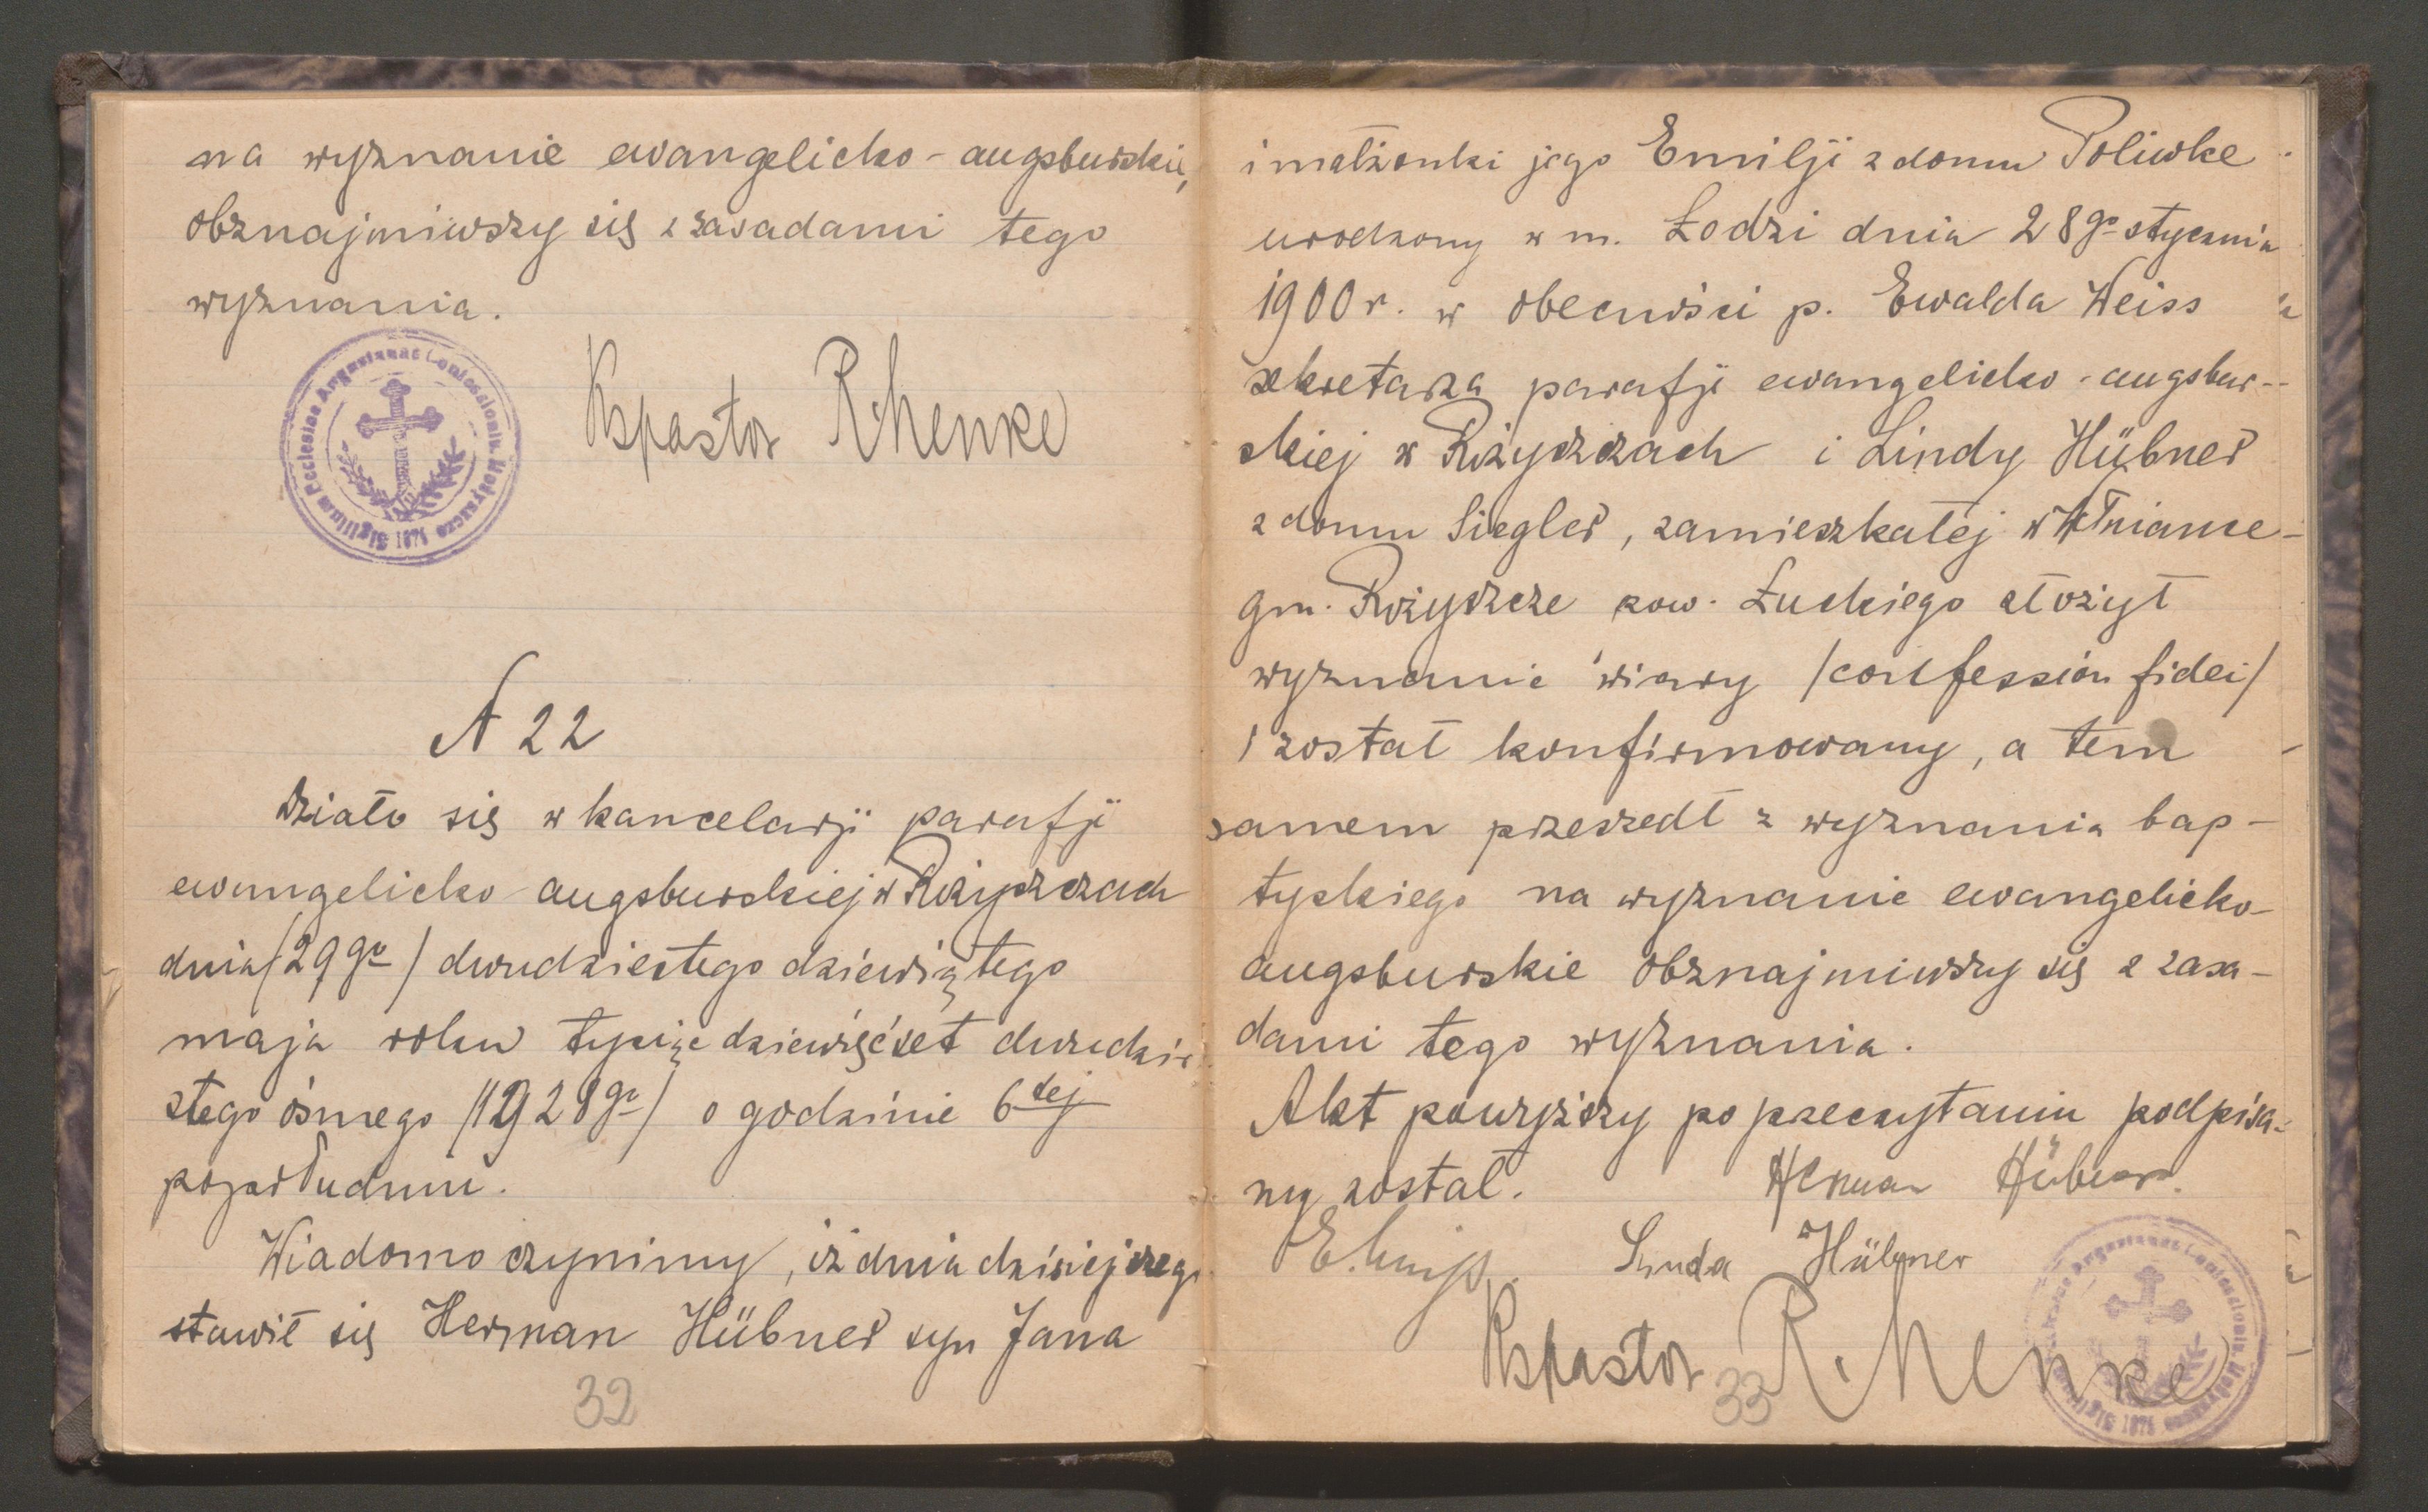 na wyznanie ewangelicko-augsburskie,
obznajmiwszy się z zasadami tego
wyznania.
Kspastor RHenke
Sigillum Ecclesiae Augustanae Confessionis Rożyszcze 1871
N 22
Działo się w kancelarji parafji
ewangelicko augsburskiej w Rożyszczach
dnia /29go/ dwudziestego dziewiątego
maja roku tysiąc dziewięćset dwudzie
stego ósmego /1928go/ o godzinie 6tej
popołudniu.
Wiadomo czynimy, iż dnia dzisiejszego
stawił się Herman Hübner syn Jana
32
i małżonki jego Emilji z domu Poliwke
urodzony w m. Łodzi dnia 28go stycznia
1900 r. w obecności p. Ewalda Weiss
sekretarza parafji ewangelicko-augsbur-
skiej w Rożyszczach i Lindy Hübner
z domu Siegler, zamieszkałej w
gm. Rożyszcze pow. Łuckiego złożył
wyznanie wiary /confession fidei/
i został konfirmowany, a tem
samem przeszedł z wyznania bap-
tyskiego na wyznanie ewangelicko-
augsburskie obznajmiwszy się z zasa-
dami tego wyznania.
Akt powyższy po przeczytaniu podpisa-
ny został. Herman Hübner.
E. Linda Hübner
Kspastor R. Henke
33